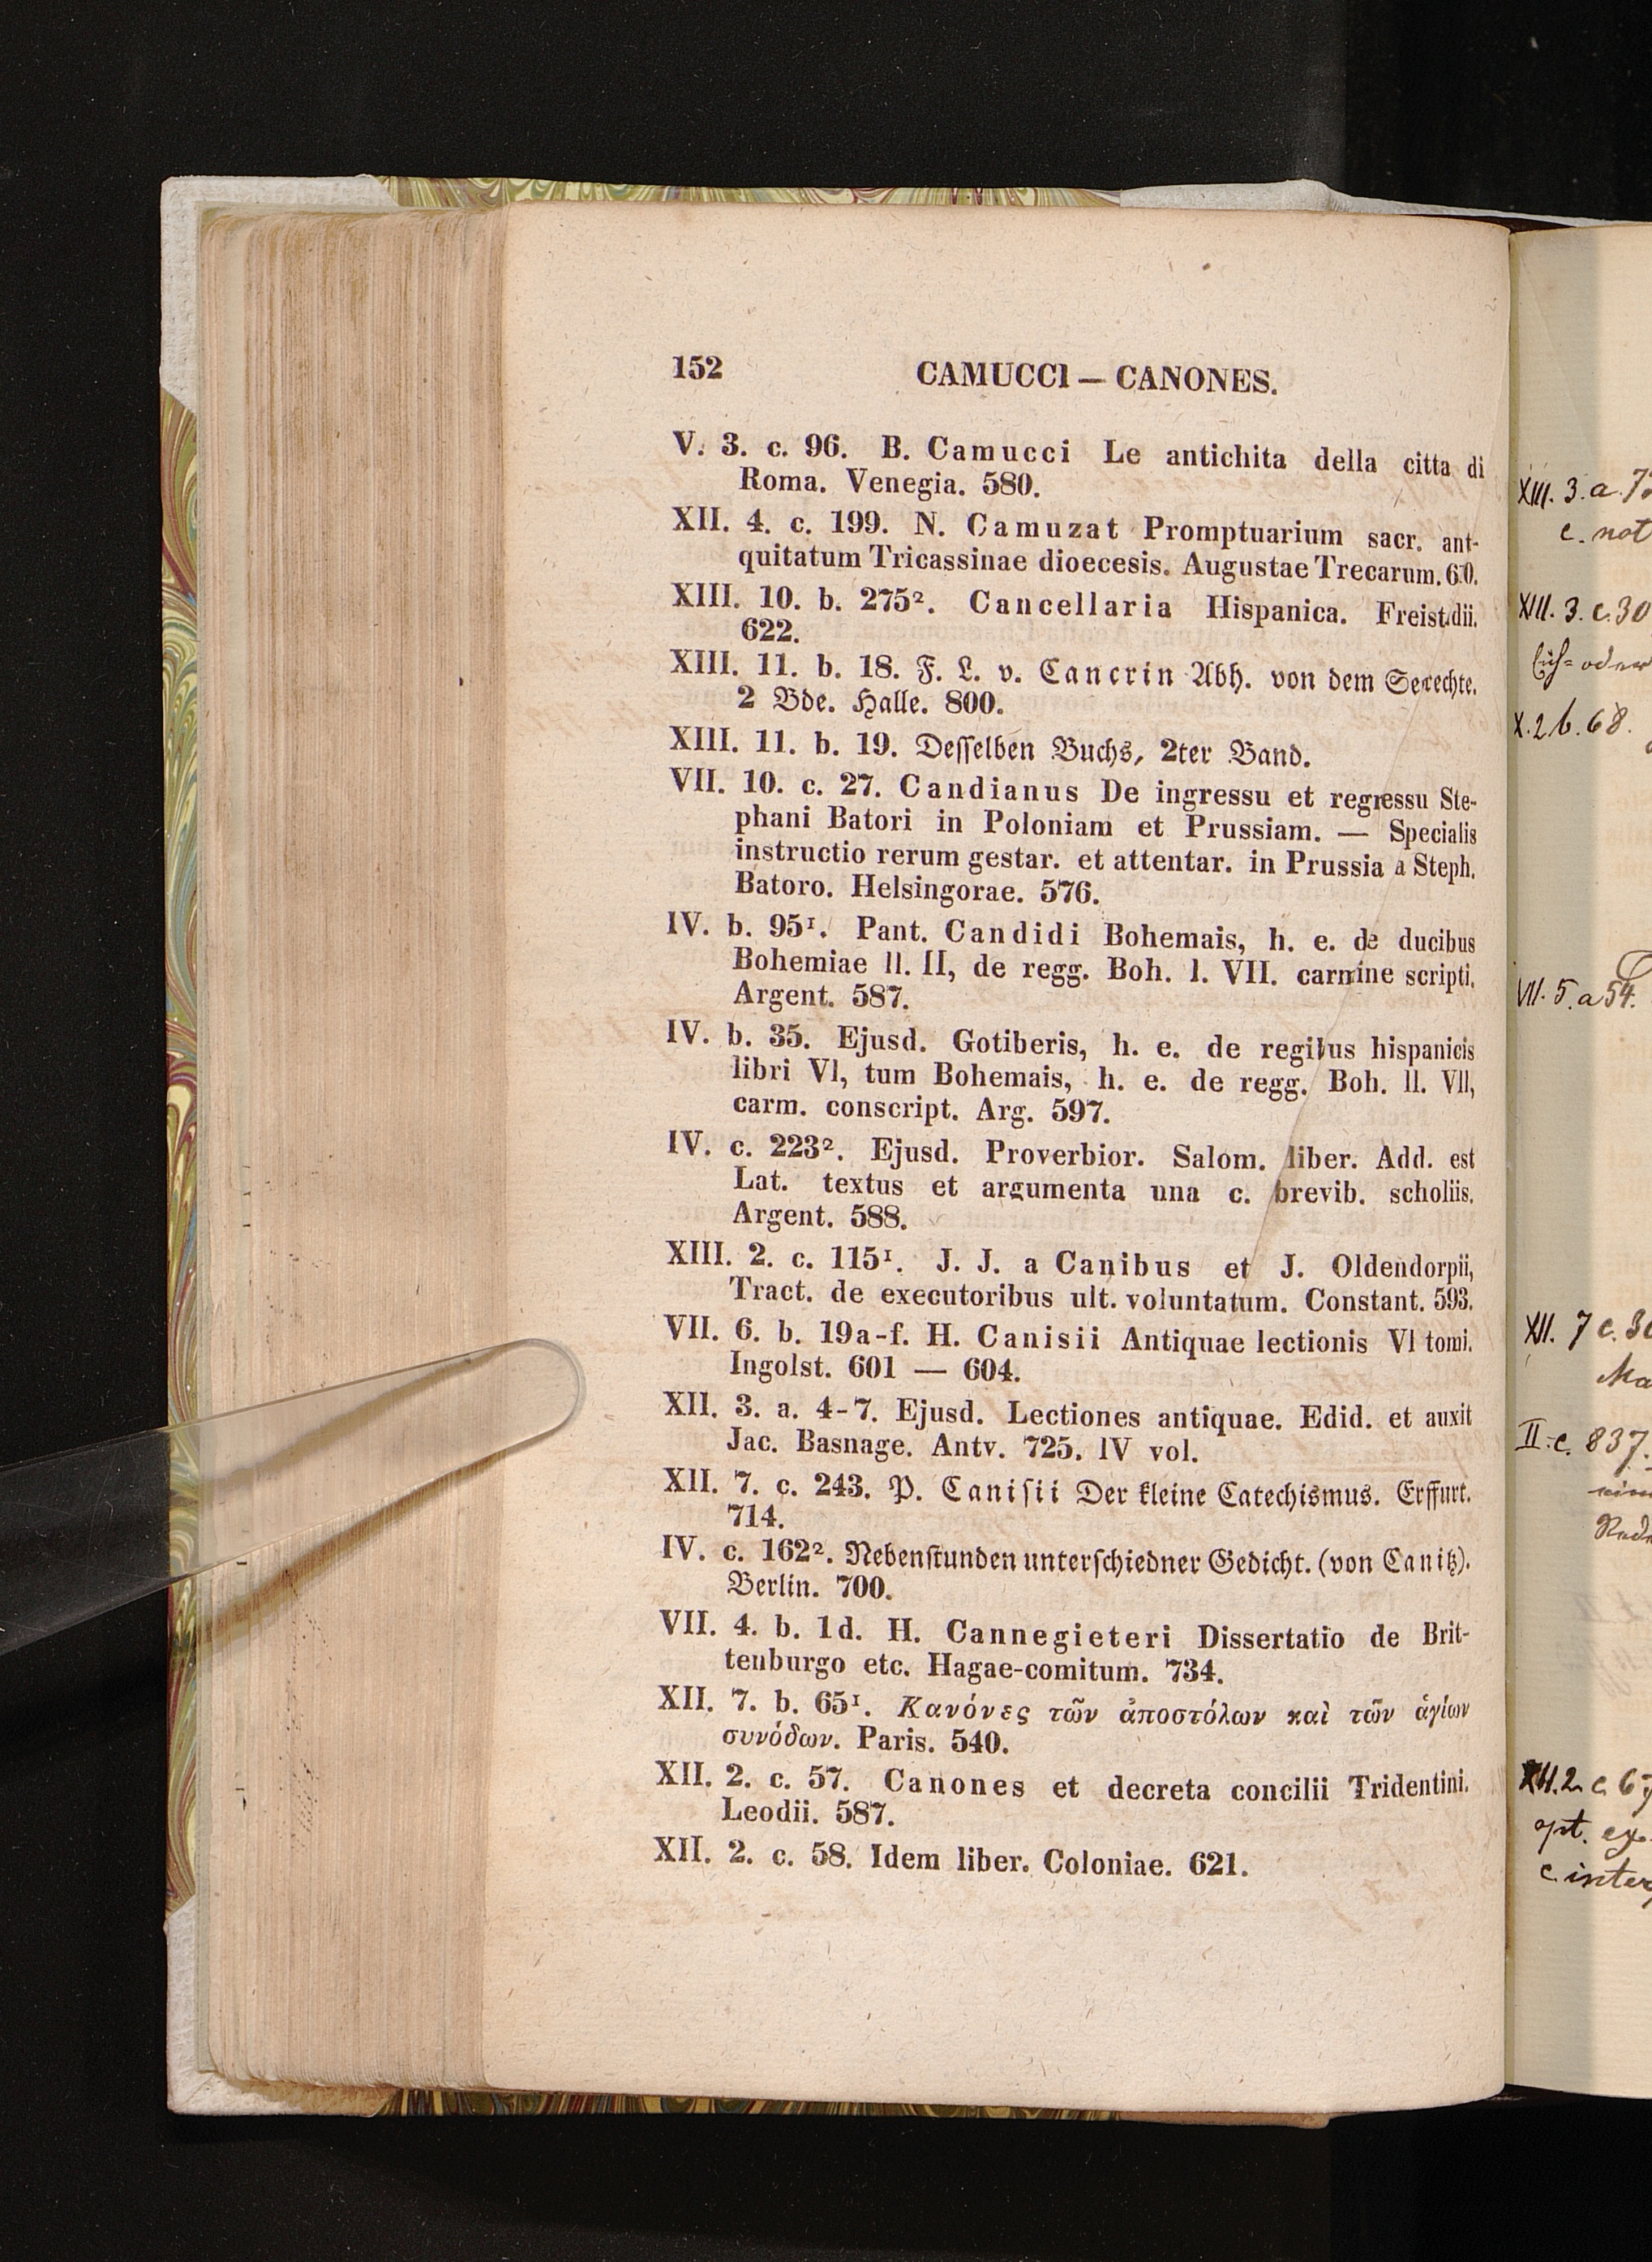 152 CAMUCCI — CANONES.
V. 3. c. 96. B. Camucci Le antichita della citta di
Roma. Venegia. 580.
XII. 4. c. 199. N. Camuzat Promptuarium sacr. ant-
quitatum Tricassinae dioecesis. Augustae Trecarum. 610.
XIII. 10. b. 275². Cancellaria Hispanica. Freistadii.
622.
XIII. 11. b. 18. F. L. v. Cancrin Abh. von dem Seerechte.
2 Bde. Halle. 800.
XIII. 11. b. 19. Desselben Buchs, 2ter Band.
VII. 10. c. 27. Candianus De ingressu et regressu Ste-
phani Batori in Poloniam et Prussiam. — Specialis
instructio rerum gestar. et attentar. in Prussia a Steph.
Batoro. Helsingorae. 576.
IV. b. 95¹. Pant. Candidi Bohemais, h. e. de ducibus
Bohemiae ll. II, de regg. Boh. l. VII. carmine scripti.
Argent. 587.
IV. b. 35. Ejusd. Gotiberis, h. e. de regibus hispanicis
libri VI, tum Bohemais, h. e. de regg. Boh. ll. VII,
carm. conscript. Arg. 597.
IV. c. 223². Ejusd. Proverbior. Salom. liber. Add. est
Lat. textus et argumenta una c. brevib. scholiis.
Argent. 588.
XIII. 2. c. 115¹. J. J. a Canibus et J. Oldendorpii,
Tract. de executoribus ult. voluntatum. Constant. 593.
VII. 6. b. 19a-f. H. Canisii Antiquae lectionis VI tomi.
Ingolst. 601 — 604.
XII. 3. a. 4-7. Ejusd. Lectiones antiquae. Edid. et auxit
Jac. Basnage. Antv. 725. IV vol.
XII. 7. c. 243. P. Canisii Der kleine Catechismus. Erffurt.
714.
IV. c. 162². Nebenstunden unterschiedner Gedicht. (von Canitz).
Berlin. 700.
VII. 4. b. 1d. H. Cannegieteri Dissertatio de Brit-
tenburgo etc. Hagae-comitum. 734.
XII. 7. b. 65¹. Κανόνες τῶν ἀποστόλων καὶ τῶν ἁγίων
συνόδων. Paris. 540.
XII. 2. c. 57. Canones et decreta concilii Tridentini.
Leodii. 587.
XII. 2. c. 58. Idem liber. Coloniae. 621.
XIII. 3. a.
c. not
XII. 3. c. 30
oder
X. 2 b. 68.
VII. 5. a 54.
XII. 7 c. 30
Ma
II. c. 837.
XII. 2. c. 67
opt. ex.
c. inter